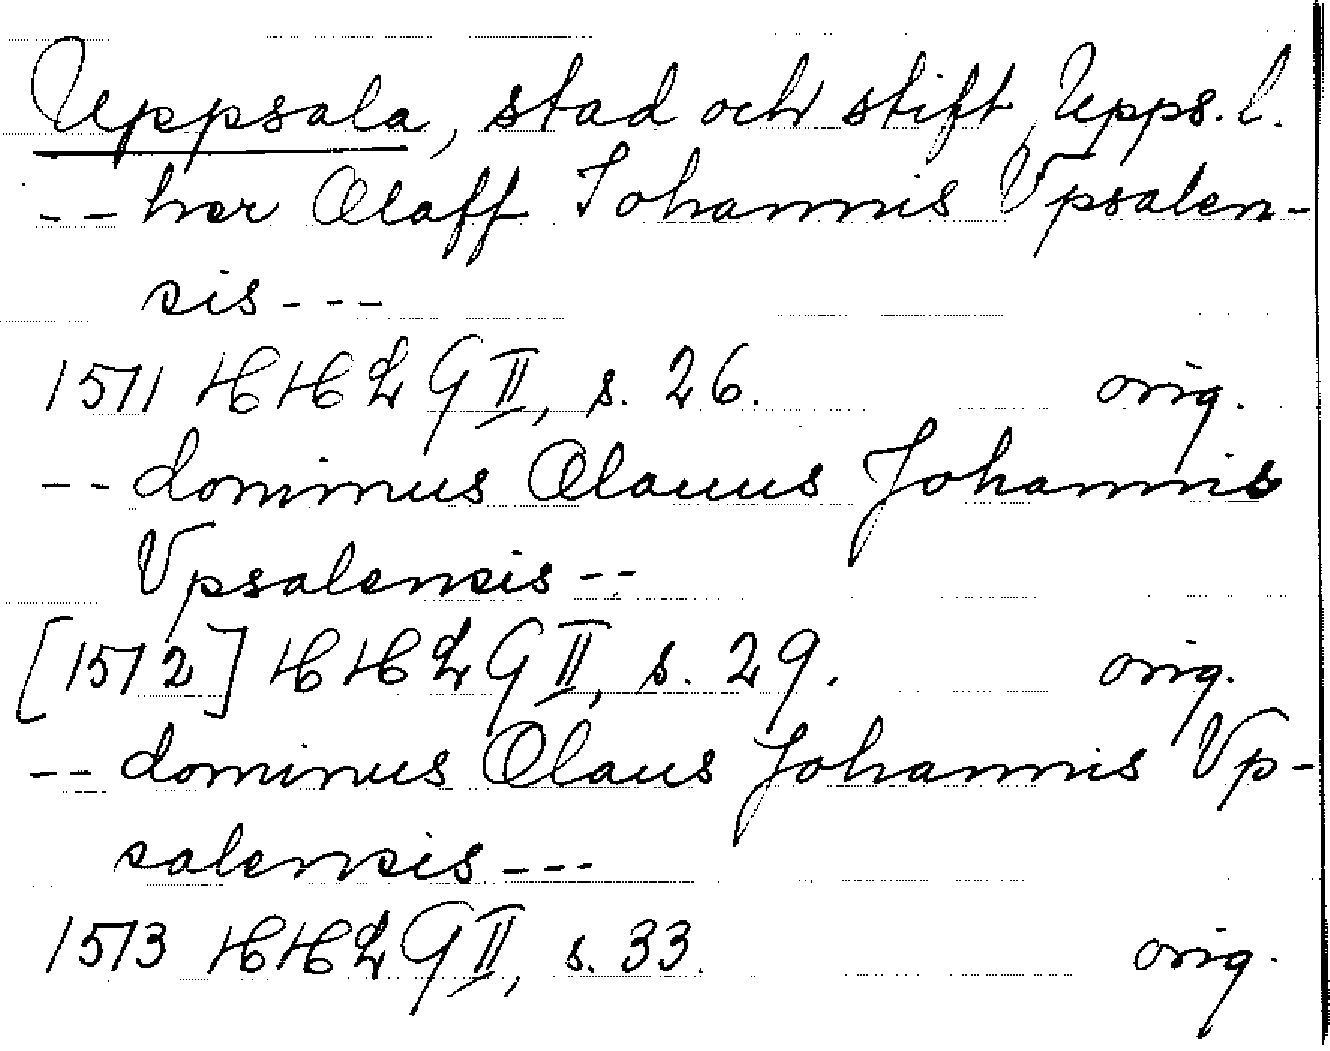 Uppsala, stad och stift, Upps. l.
-- her Olaff Johannis Vpsalen-
sis ---
1511 HHLG II, s. 26. orig.
-- dominus Olauus Johannis
Vpsalensis --
[1512] HHLG II, s. 29. orig.
-- dominus Olaus Johannis Vp-
salensis ---
1513 HHLG II, s. 33. orig.